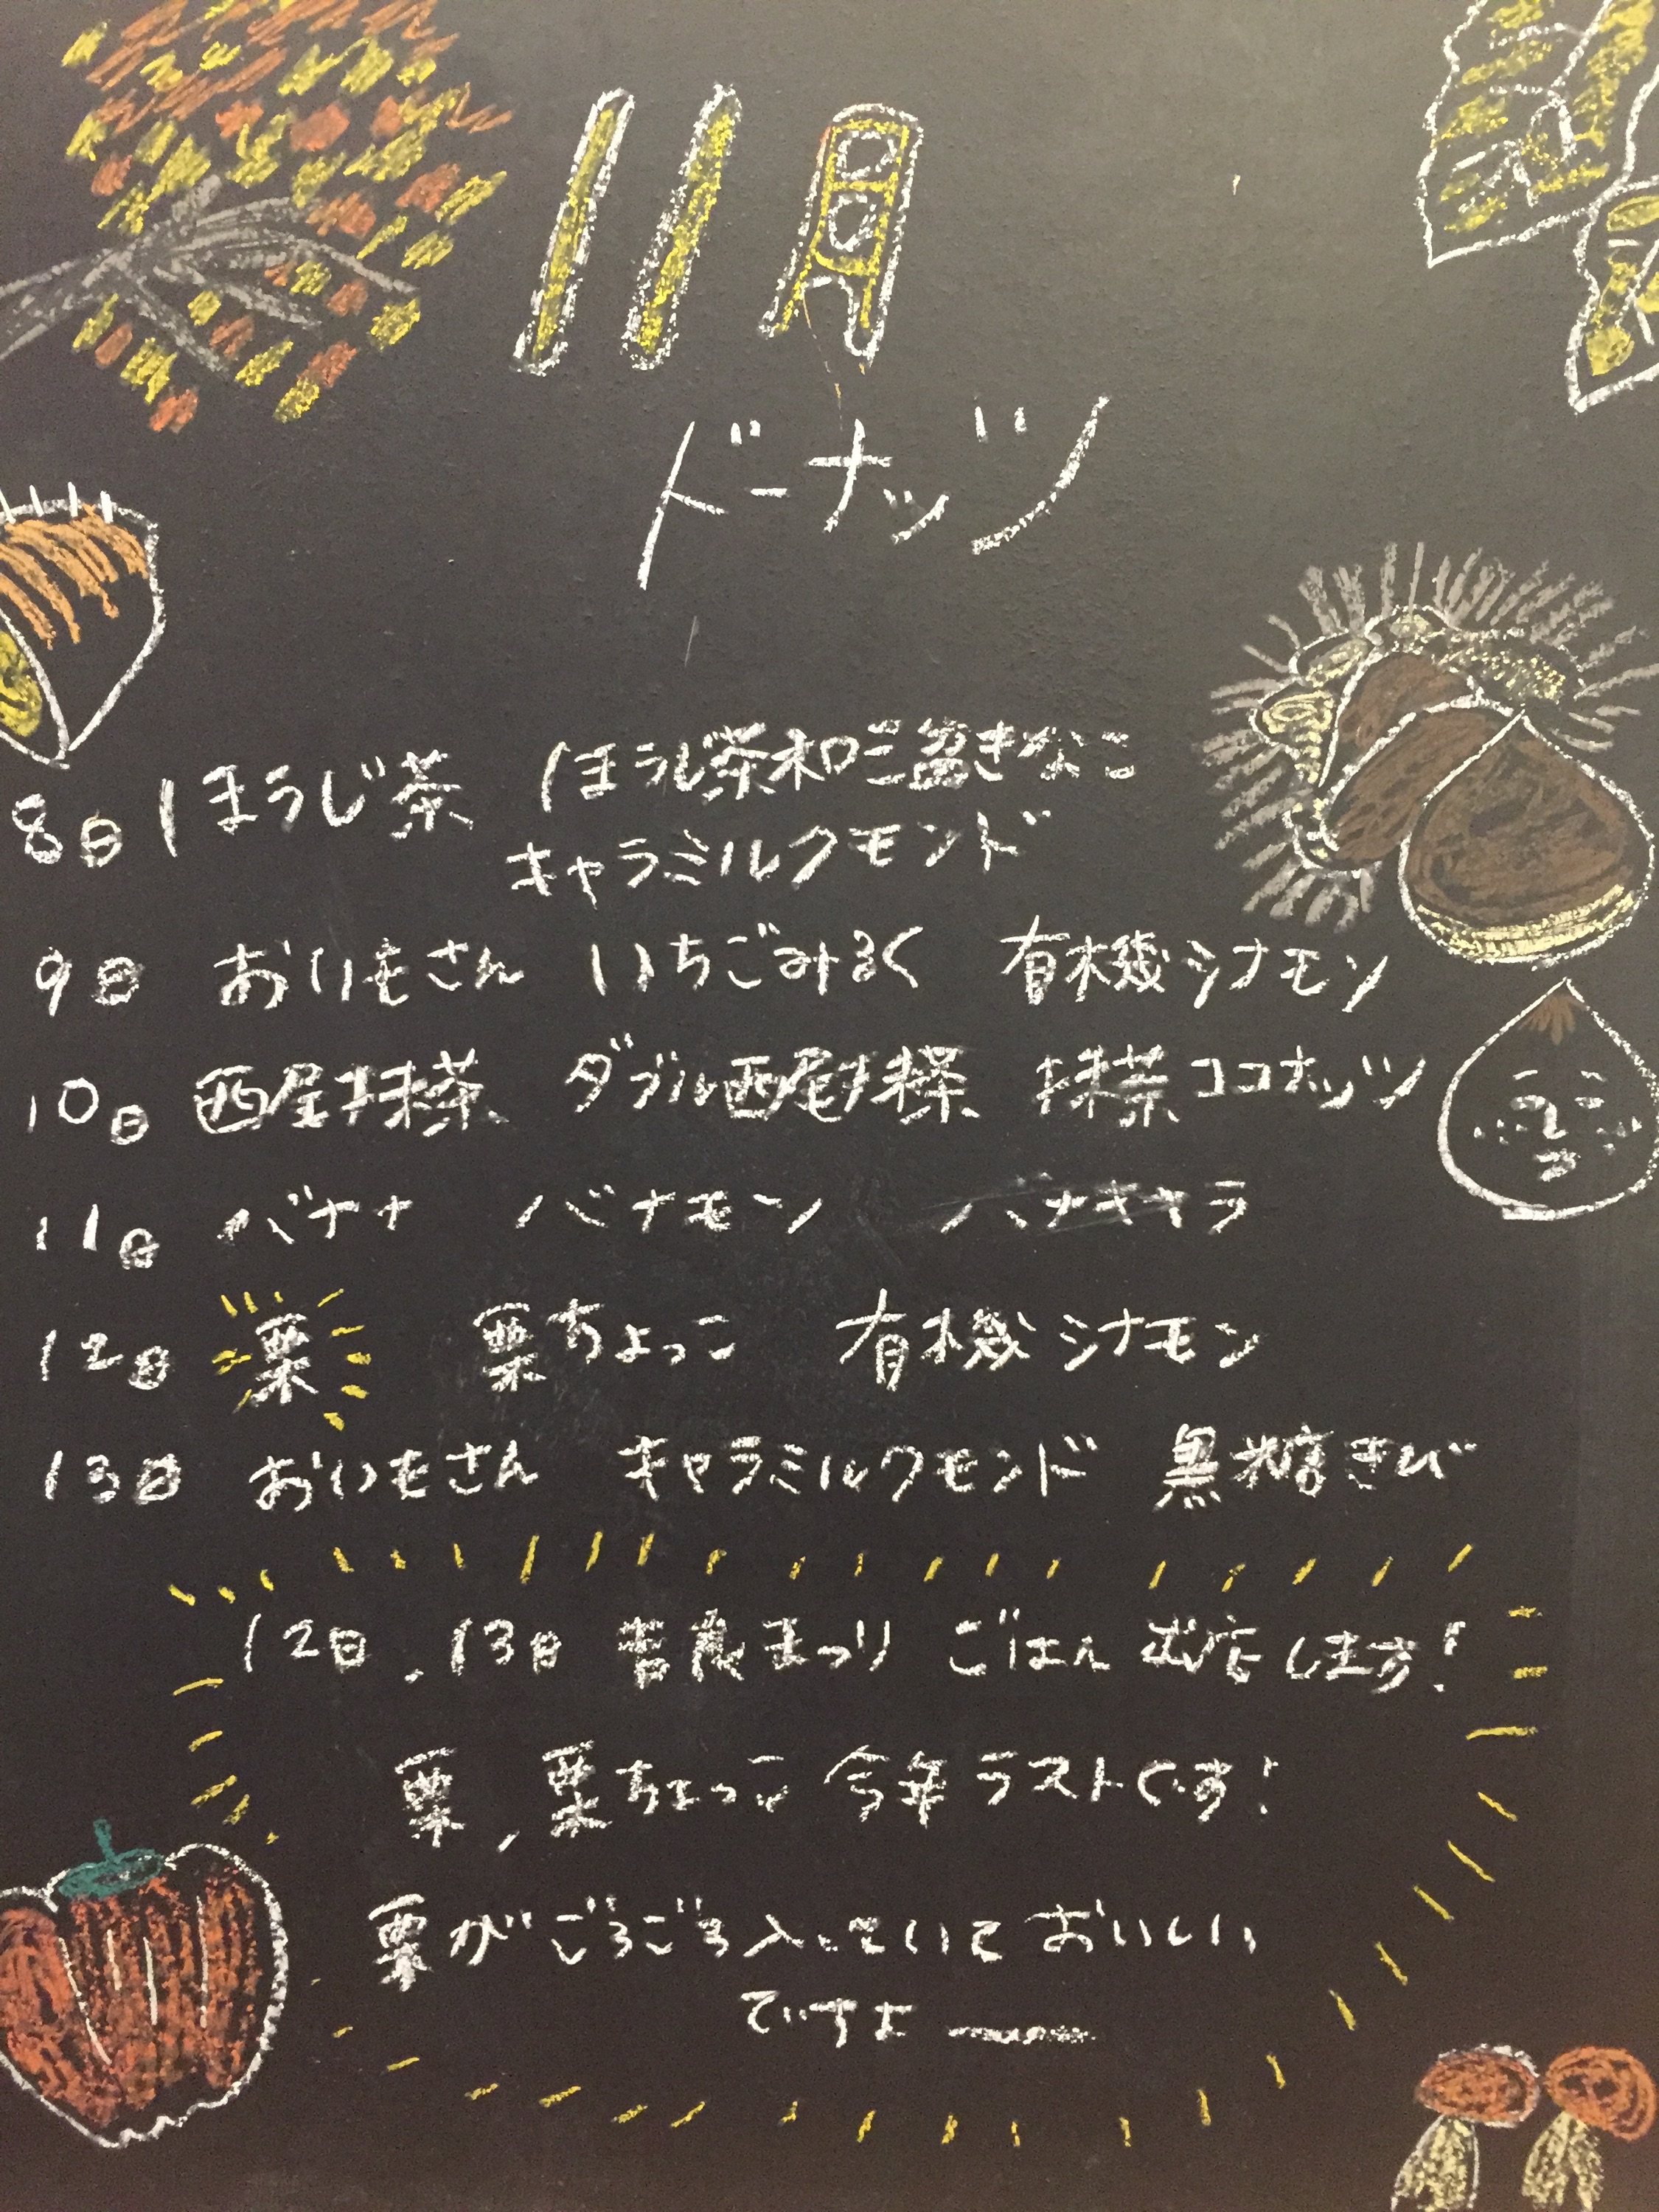 11月
ドーナッツ
8日 ほうじ茶 ほうじ茶和三盆きなこ
キャラミルクモンド
9日 おいもさん いちごみるく 有機シナモン
10日 西尾抹茶 ダブル西尾抹茶 抹茶ココナッツ
11日 バナナ バナモン バナキャラ
12日 栗 栗ちょっこ 有機シナモン
13日 おいもさん キャラミルクモンド 黒糖きび
12日、13日 吉良まつり ごはん 出店します!
栗、栗ちょっこ 今年ラストです!
栗がごろごろ入っていておいしい
ですよー